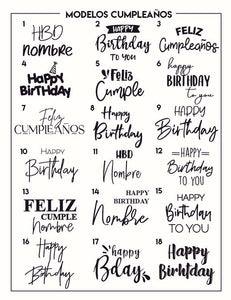 MODELOS CUMPLEAÑOS
1
HBD
nombre
2
Happy
Birthday
TO YOU
3
FELIZ
Cumpleaños
4
HAPPY
BiRTHDAY
5
Feliz
Cumple
6
happy
BIRTHDAY
to you
7
Feliz
CUMPLEAÑOS
8
Happy
Birthday
9
HAPPY
Birthday
10
HAPPY
Birthday
11
HBD
Nombre
12
HAPPY
BIRTHDAY
TO YOU
13
FELIZ
CUMPLE
Nombre
14
HAPPY
BIRTHDAY
Nombre
15
HAPPY
BIRTHDAY
TO YOU
16
Happy
Birthday
17
happy
Bday
18
HAPPY
Birthday